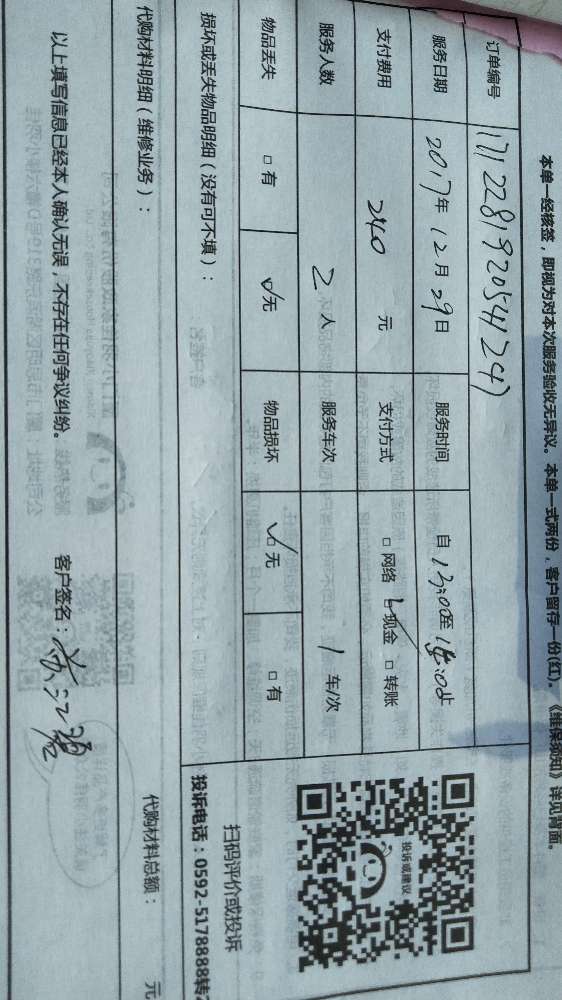 本单一经核签，即视为对本次服务验收无异议。本单一式两份，客户留存一份(红)。《维保须知》详见背面。
订单编号 171228192054124)
服务日期 2017年12月29日 服务时间 自13:00至
支付费用 240 元 支付方式 □网络 ☑现金 □转账
服务人数 2人 服务车次 1车/次
物品丢失 □有 ☑无 物品损坏 ☑无 □有
投诉或建议
损坏或丢失物品明细（没有可不填）：
扫码评价或投诉
投诉电话：0592-5178888转2
代购材料明细（维修业务）：
代购材料总额： 元
以上填写信息已经本人确认无误，不存在任何争议纠纷。 客户签名：